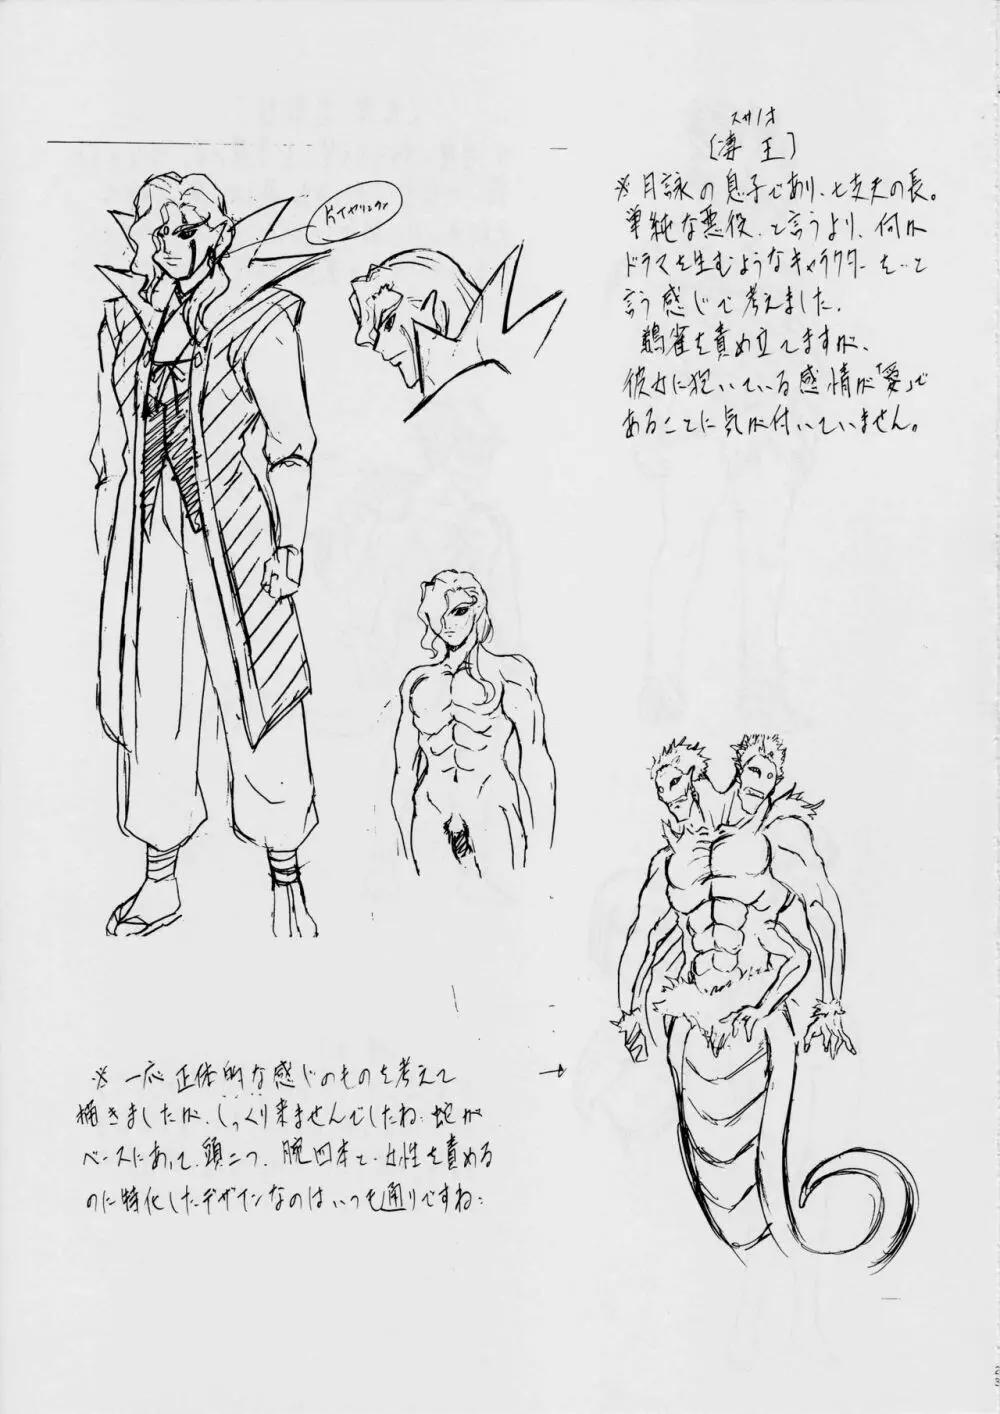 スサノオ
[凄王]
※月詠の息子であり、七丈夫の長。
単純な悪役、と言うより、何か
ドラマを生むようなキャラクターを…と
言う感じで考えました。
鵺雀を責め立てますが、
彼女に抱いている感情が「愛」で
あることに気が付いていません。
片イヤリング
※一応正体的な感じのものを考えて
描きましたが、しっくり来ませんでしたね…蛇が
ベースにあって、頭二つ、腕四本と、女性を責める
のに特化したデザインなのはいつも通りですね…
23